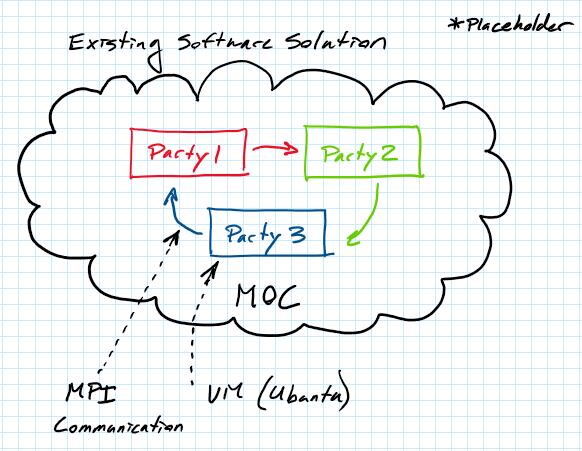 *Placeholder
Existing Software Solution
Party 1
Party 2
Party 3
MOC
MPI
Communication
VM (Ubuntu)